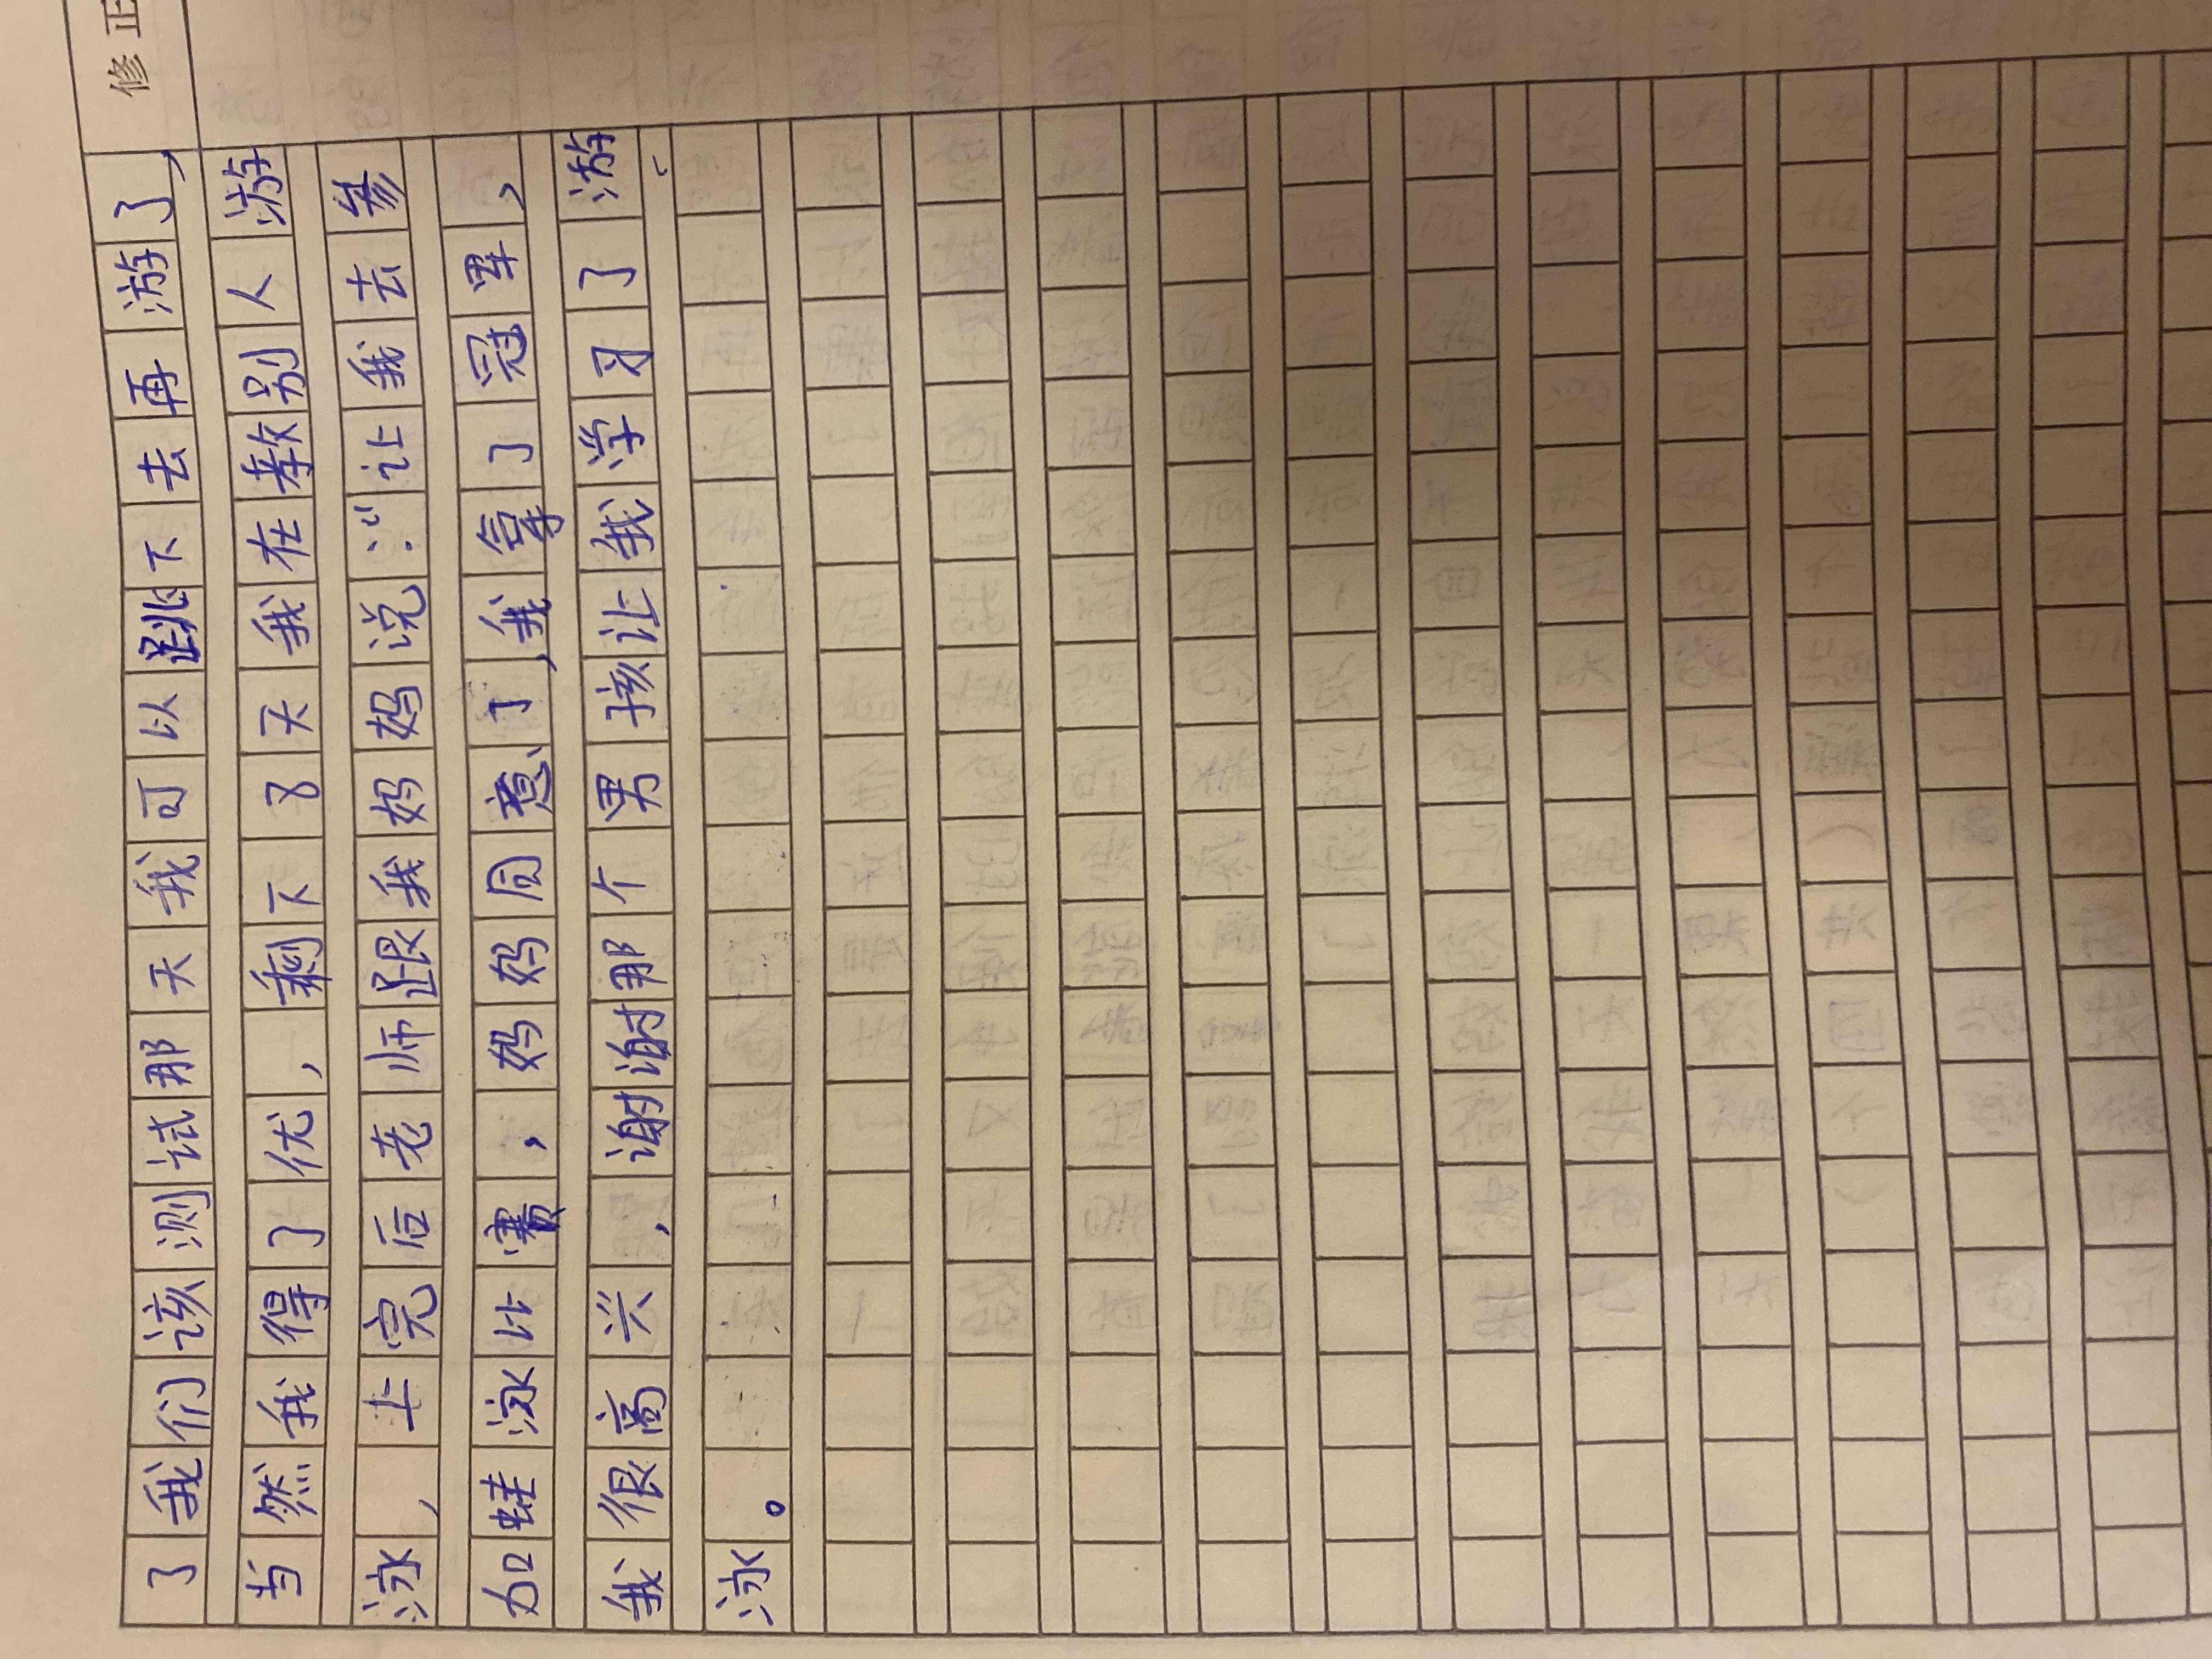 修正
了我们该测试那天我可以跳下去再游了,
当然我得了优,剩下8天我在教别人游
泳,上完后老师跟我妈妈说:“让我去参
加蛙泳比赛,妈妈同意了,我拿了冠军,
我很高兴,谢谢那个男孩让我学习了游
泳。